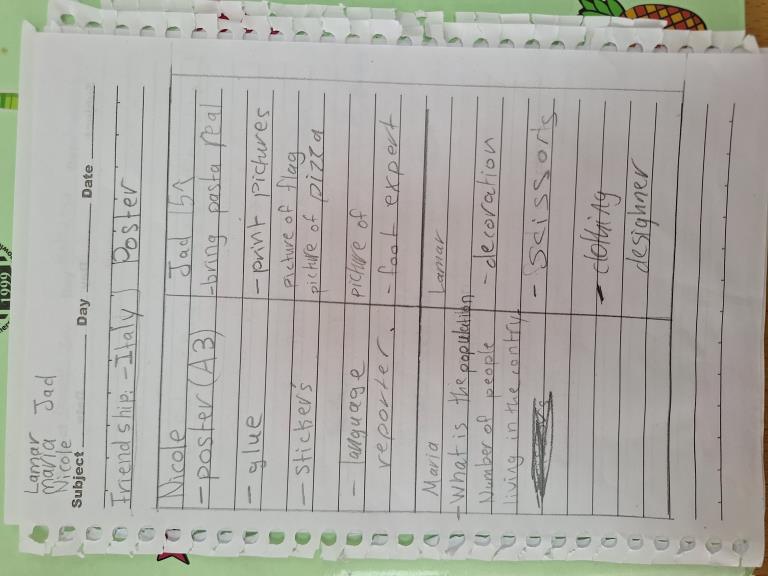 Lamar
Maria Jad
Nicole
Subject Day Date
Friendship:-Italy) Poster
Nicole
-poster(A3)
-glue
-Sticker's
-language
reporter.
Jad
-bring pasta real
-print pictures
picture of flag
picture of pizza
picture of
-foot expert
Maria
-What is the population
Number of people
living in the contry
Lamar
-decoration
-Scissorts
-clothing
desighner
1999